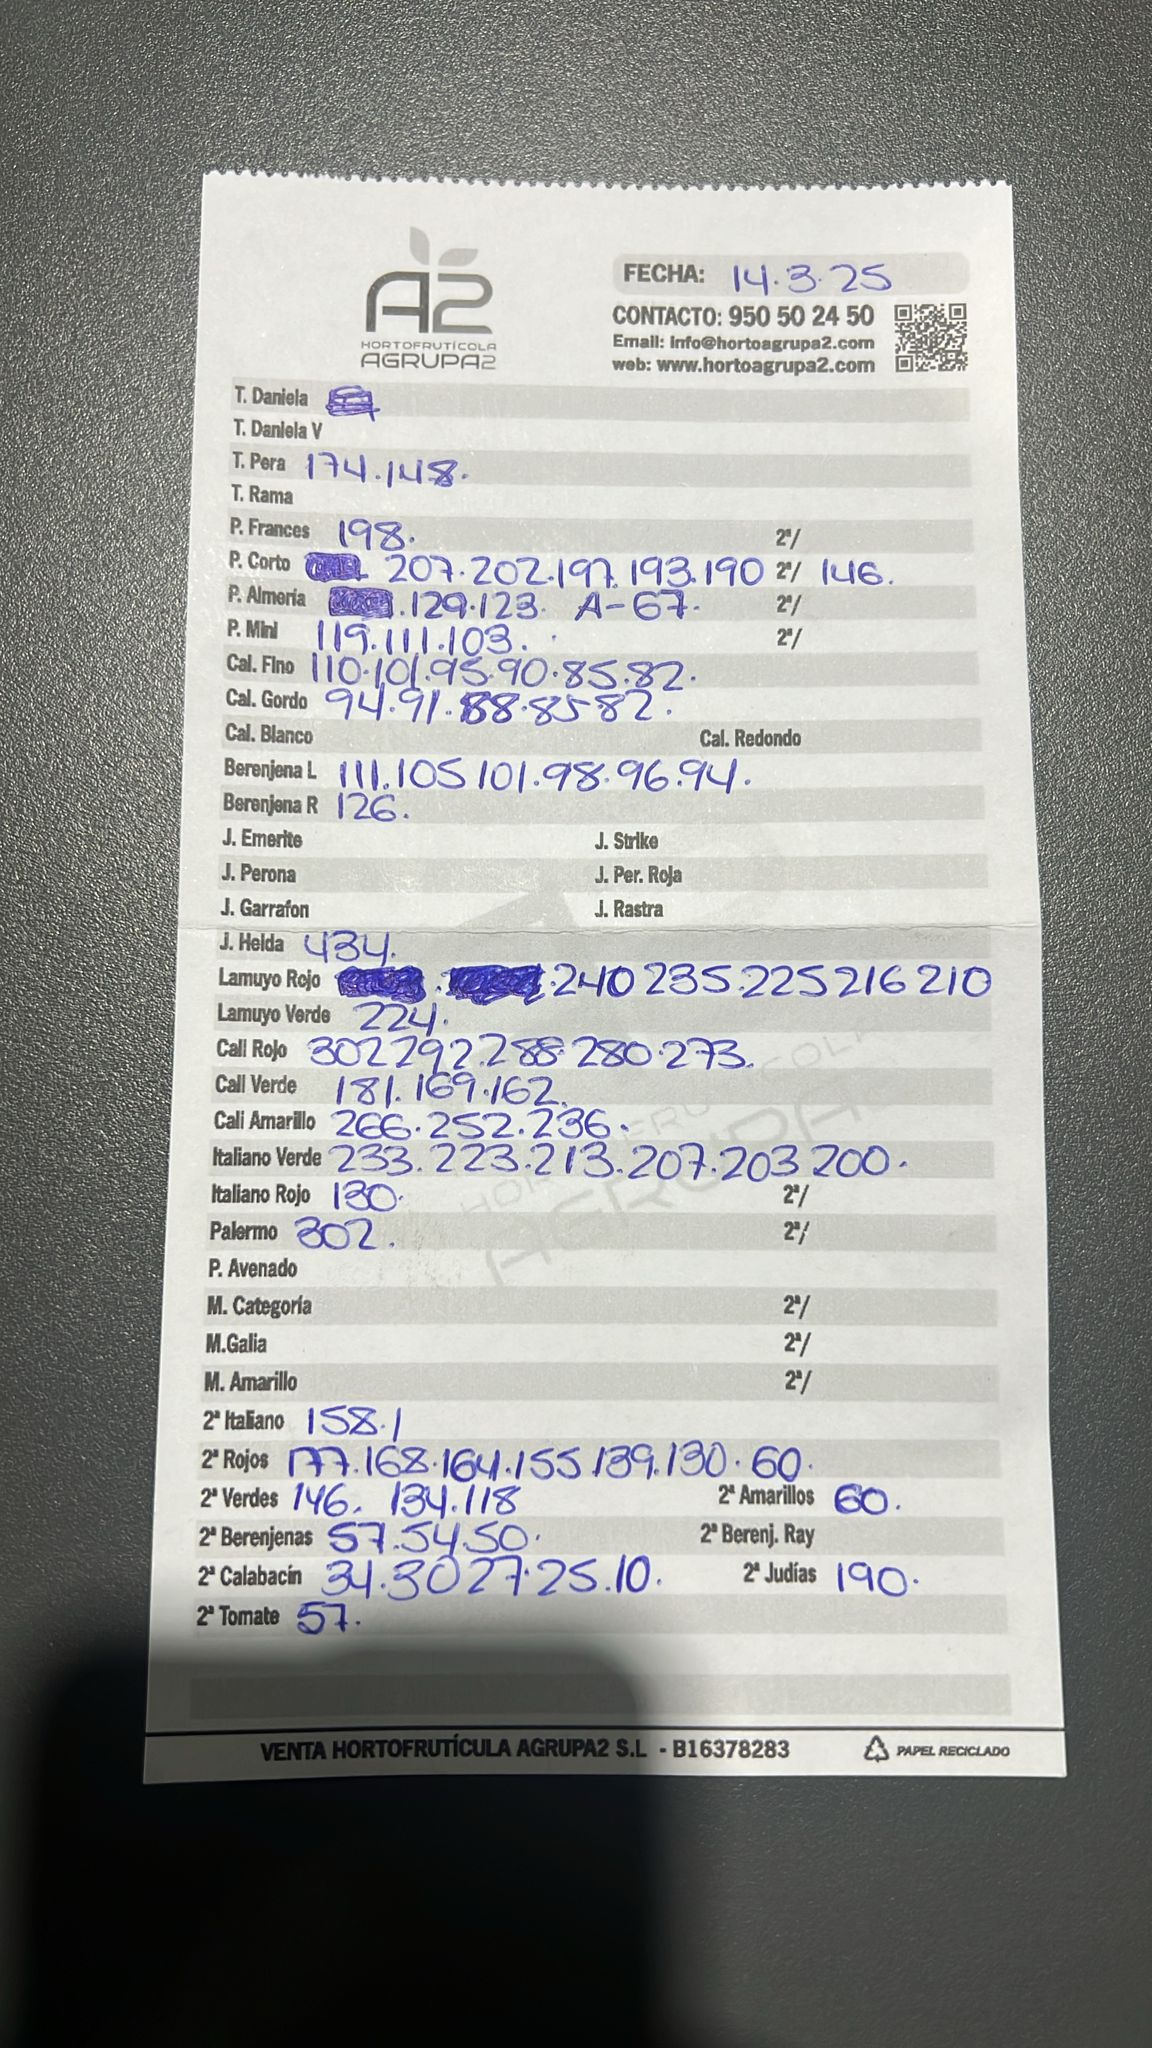 A2
HORTOFRUTÍCOLA
AGRUPA2
FECHA: 14.3.25
CONTACTO: 950 50 24 50
Email: info@hortoagrupa2.com
web: www.hortoagrupa2.com
T. Daniela
T. Daniela V
T. Pera 174.148.
T. Rama
P. Frances 198. 2ª/
P. Corto 207.202.197.193.190 2ª/ 146.
P. Almería .129.123. A-67. 2ª/
P. Mini 119.111.103. 2ª/
Cal. Fino 110.101.95.90.85.82.
Cal. Gordo 94.91.88.85 82.
Cal. Blanco Cal. Redondo
Berenjena L 111.105 101.98.96.94.
Berenjena R 126.
J. Emerite J. Strike
J. Perona J. Per. Roja
J. Garrafon J. Rastra
J. Helda 434.
Lamuyo Rojo . .240 235.225 216 210
Lamuyo Verde 224.
Cali Rojo 302 292.288.280.273.
Cali Verde 181.169.162.
Cali Amarillo 266.252.236.
Italiano Verde 233.223.213.207.203 200.
Italiano Rojo 130. 2ª/
Palermo 302. 2ª/
P. Avenado
M. Categoría 2ª/
M.Galia 2ª/
M. Amarillo 2ª/
2ª Italiano 158.1
2ª Rojos 177.168.164.155 139.130.60.
2ª Verdes 146. 134.118 2ª Amarillos 60.
2ª Berenjenas 57.54.50. 2ª Berenj. Ray
2ª Calabacín 34.30 27.25.10. 2ª Judías 190.
2ª Tomate 57.
VENTA HORTOFRUTÍCULA AGRUPA2 S.L - B16378283 PAPEL RECICLADO